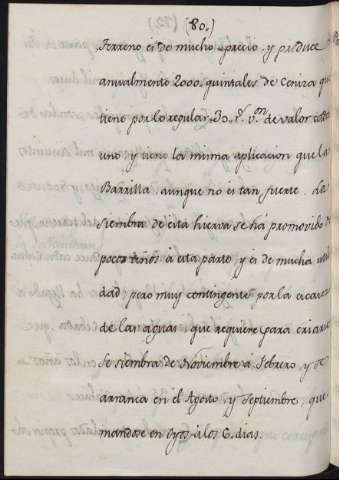 (80.)
terreno es de mucho precio, y produce
anualmente 2000, quintales de Ceniza que
tiene por lo regular 30 r.s v.on de valor cada
uno, y tiene la misma aplicacion que la
Barrilla, aunque no es tan fuerte. La
siembra de esta hierva se há promovido de
pocos años á esta parte, y es de mucha utili
dad; pero muy contingente por la escasez
de las aguas, que requiere para criarse.
Se siembra de Noviembre á Febrero, y se
arranca en el Agosto, y Septiembre, que
mandose en oyos á los 6. dias.